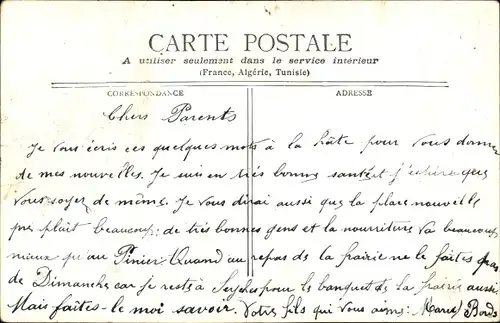 CARTE POSTALE
A utiliser seulement dans le service intérieur
(France, Algérie, Tunisie)
CORRESPONDANCE
ADRESSE
Chers Parents
Je vous écris ces quelques mots à la hâte pour vous donner
de mes nouvelles. Je suis en très bonne santé et j'espère que
vous soyez de même. Je vous dirai aussi que la place nouvelle
me plait beaucoup: de très bonnes gens et la nourriture va beaucoup
mieux qu'au Pinier. Quand au repas de la frairie ne le faites pas
de Dimanche car je reste à pour le banquet de la frairie aussi
Mais faîtes-le moi savoir. Votre fils qui vous aime